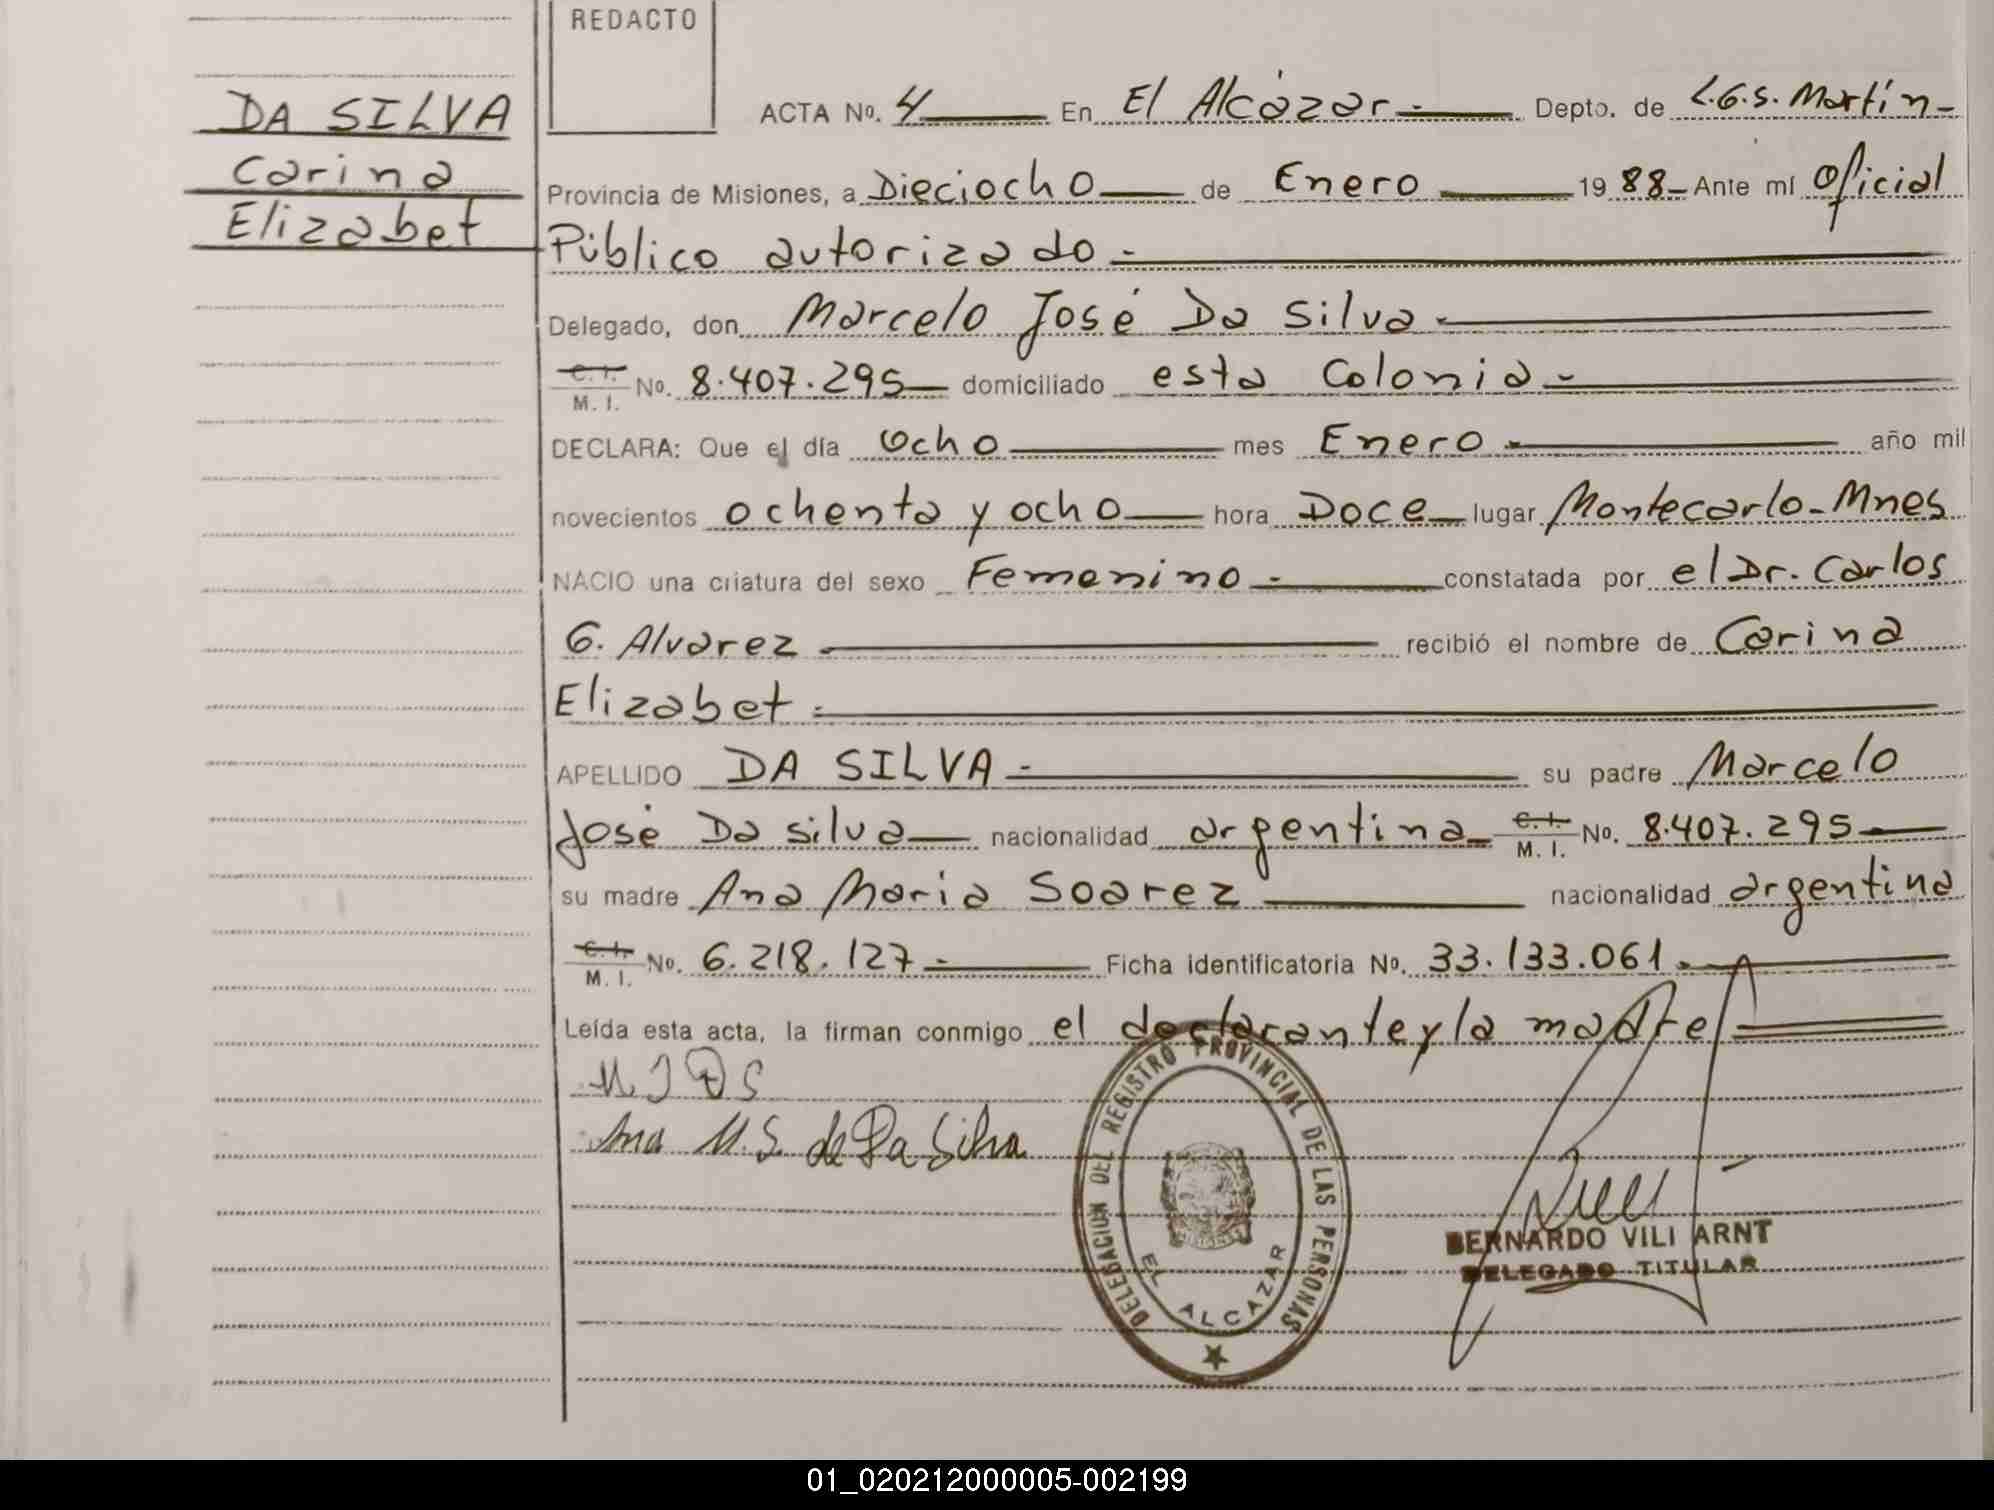 REDACTO
DA SILVA
Carina
Elizabet
ACTA No. 4 En El Alcázar - Depto. de L.G.S. Martín -
Provincia de Misiones, a Dieciocho de Enero 19 88 - Ante mí Oficial
Público autorizado -
Delegado, don Marcelo José Da Silva -
C. I. / M. I. No. 8.407.295 domiciliado esta Colonia -
DECLARA: Que el día Ocho mes Enero - año mil
novecientos ochenta y ocho hora Doce lugar Montecarlo - Mnes
NACIO una criatura del sexo Femenino - constatada por el Dr. Carlos
G. Alvarez recibió el nombre de Carina
Elizabet -
APELLIDO DA SILVA - su padre Marcelo
José Da Silva nacionalidad argentina C. I. / M. I. No. 8.407.295
su madre Ana Maria Soarez nacionalidad argentina
C. I. / M. I. No. 6.218.127 - Ficha identificatoria No. 33.133.061 -
Leída esta acta, la firman conmigo el declarante y la madre
M J D S
Ana M. S. de Da Silva
DELEGACION DEL REGISTRO PROVINCIAL DE LAS PERSONAS
EL ALCAZAR
BERNARDO VILI ARNT
DELEGADO TITULAR
01_020212000005-002199